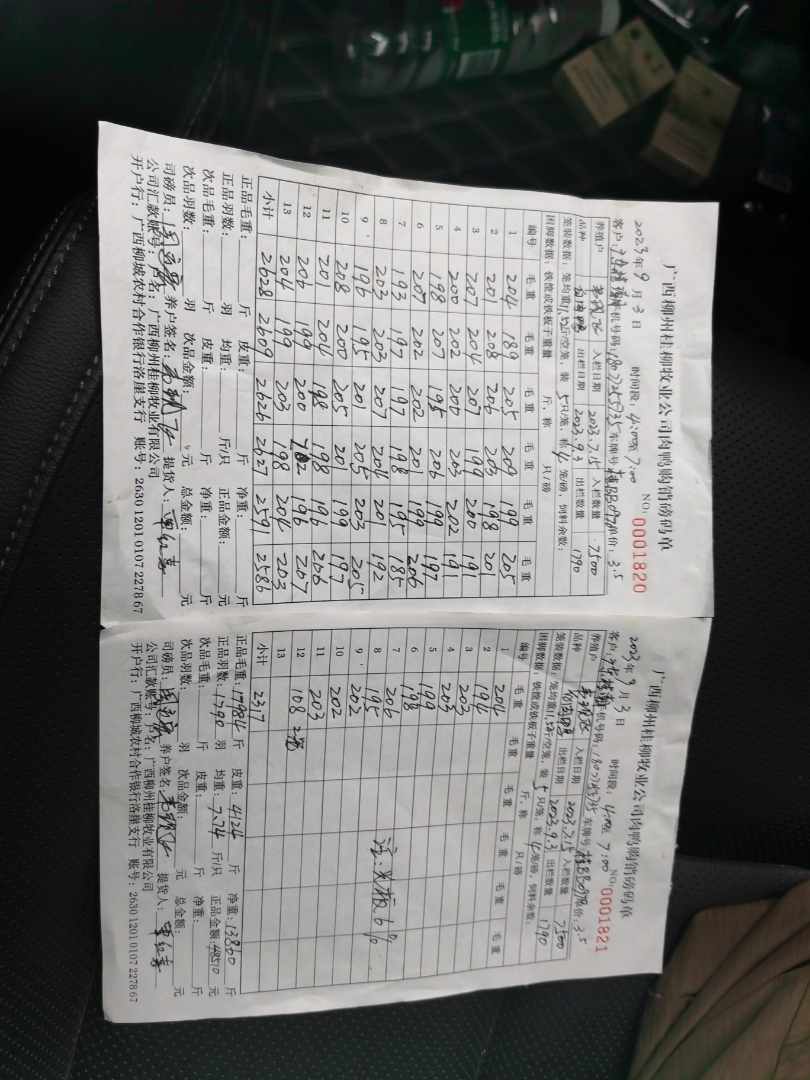 广西柳州桂柳牧业公司肉鸭购销磅码单
NO: 0001820
2023年9月3日 时间段: 4:00至7:00
客户: 手机号码: 18077255735 车牌号: 桂BB097 单价: 3.5
养殖户 入栏日期 2023.7.15 入栏数量 7500
品种 出栏日期 2023.9.3 出栏数量 1790
笼装数据: 笼均重11.52斤/空笼, 装5只/笼, 称4笼/磅, 饲料余数:
困脚数据: 铁筐或铁板子重量 斤, 称 只/磅
编号 毛重 毛重 毛重 毛重 毛重 毛重
1 204 189 205 209 199 205
2 201 208 206 203 198 201
3 207 204 207 199 200 191
4 200 202 200 203 202 191
5 198 207 195 206 199 197
6 207 202 202 201 199 206
7 193 197 197 198 185 185
8 203 203 207 204 201 192
9 196 195 201 205 203 205
10 208 200 205 201 199 197
11 201 204 198 198 196 206
12 206 199 200 202 196 207
13 204 199 203 198 204 203
小计 2628 2609 2626 2627 2591 2586
正品毛重: 斤 皮重: 斤 净重: 斤
正品羽数: 羽 均重: 斤/只 正品金额: 元
次品毛重: 斤 皮重: 斤 净重: 斤
次品羽数: 羽 次品金额: 元 总金额: 元
司磅员: 养户签名: 提货人:
公司汇款账号: 户名: 广西柳州桂柳牧业有限公司
开户行: 广西柳城农村合作银行洛崖支行 账号: 2630 1201 0107 2278 67
广西柳州桂柳牧业公司肉鸭购销磅码单
NO: 0001821
2023年9月3日 时间段: 4:00至7:00
客户: 手机号码: 18077255735 车牌号: 桂BB097 单价: 3.5
养殖户 入栏日期 2023.7.15 入栏数量 7500
品种 出栏日期 2023.9.3 出栏数量 1790
笼装数据: 笼均重11.52斤/空笼, 装5只/笼, 称4笼/磅, 饲料余数:
困脚数据: 铁筐或铁板子重量 斤, 称 只/磅
编号 毛重 毛重 毛重 毛重 毛重 毛重
1 204
2 194
3 203
4 203
5 199
6 198
7 206
8 195
9 202
10 202
11 203
12 108 2笼
13
小计 2317
注: 6%
正品毛重: 17984斤 皮重: 4124斤 净重: 13860斤
正品羽数: 1790羽 均重: 7.74斤/只 正品金额: 48510元
次品毛重: 斤 皮重: 斤 净重: 斤
次品羽数: 羽 次品金额: 元 总金额: 元
司磅员: 养户签名: 提货人:
公司汇款账号: 户名: 广西柳州桂柳牧业有限公司
开户行: 广西柳城农村合作银行洛崖支行 账号: 2630 1201 0107 2278 67